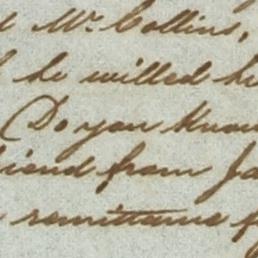 Mr. Collins,
he willed
(Do you know
from
remittance